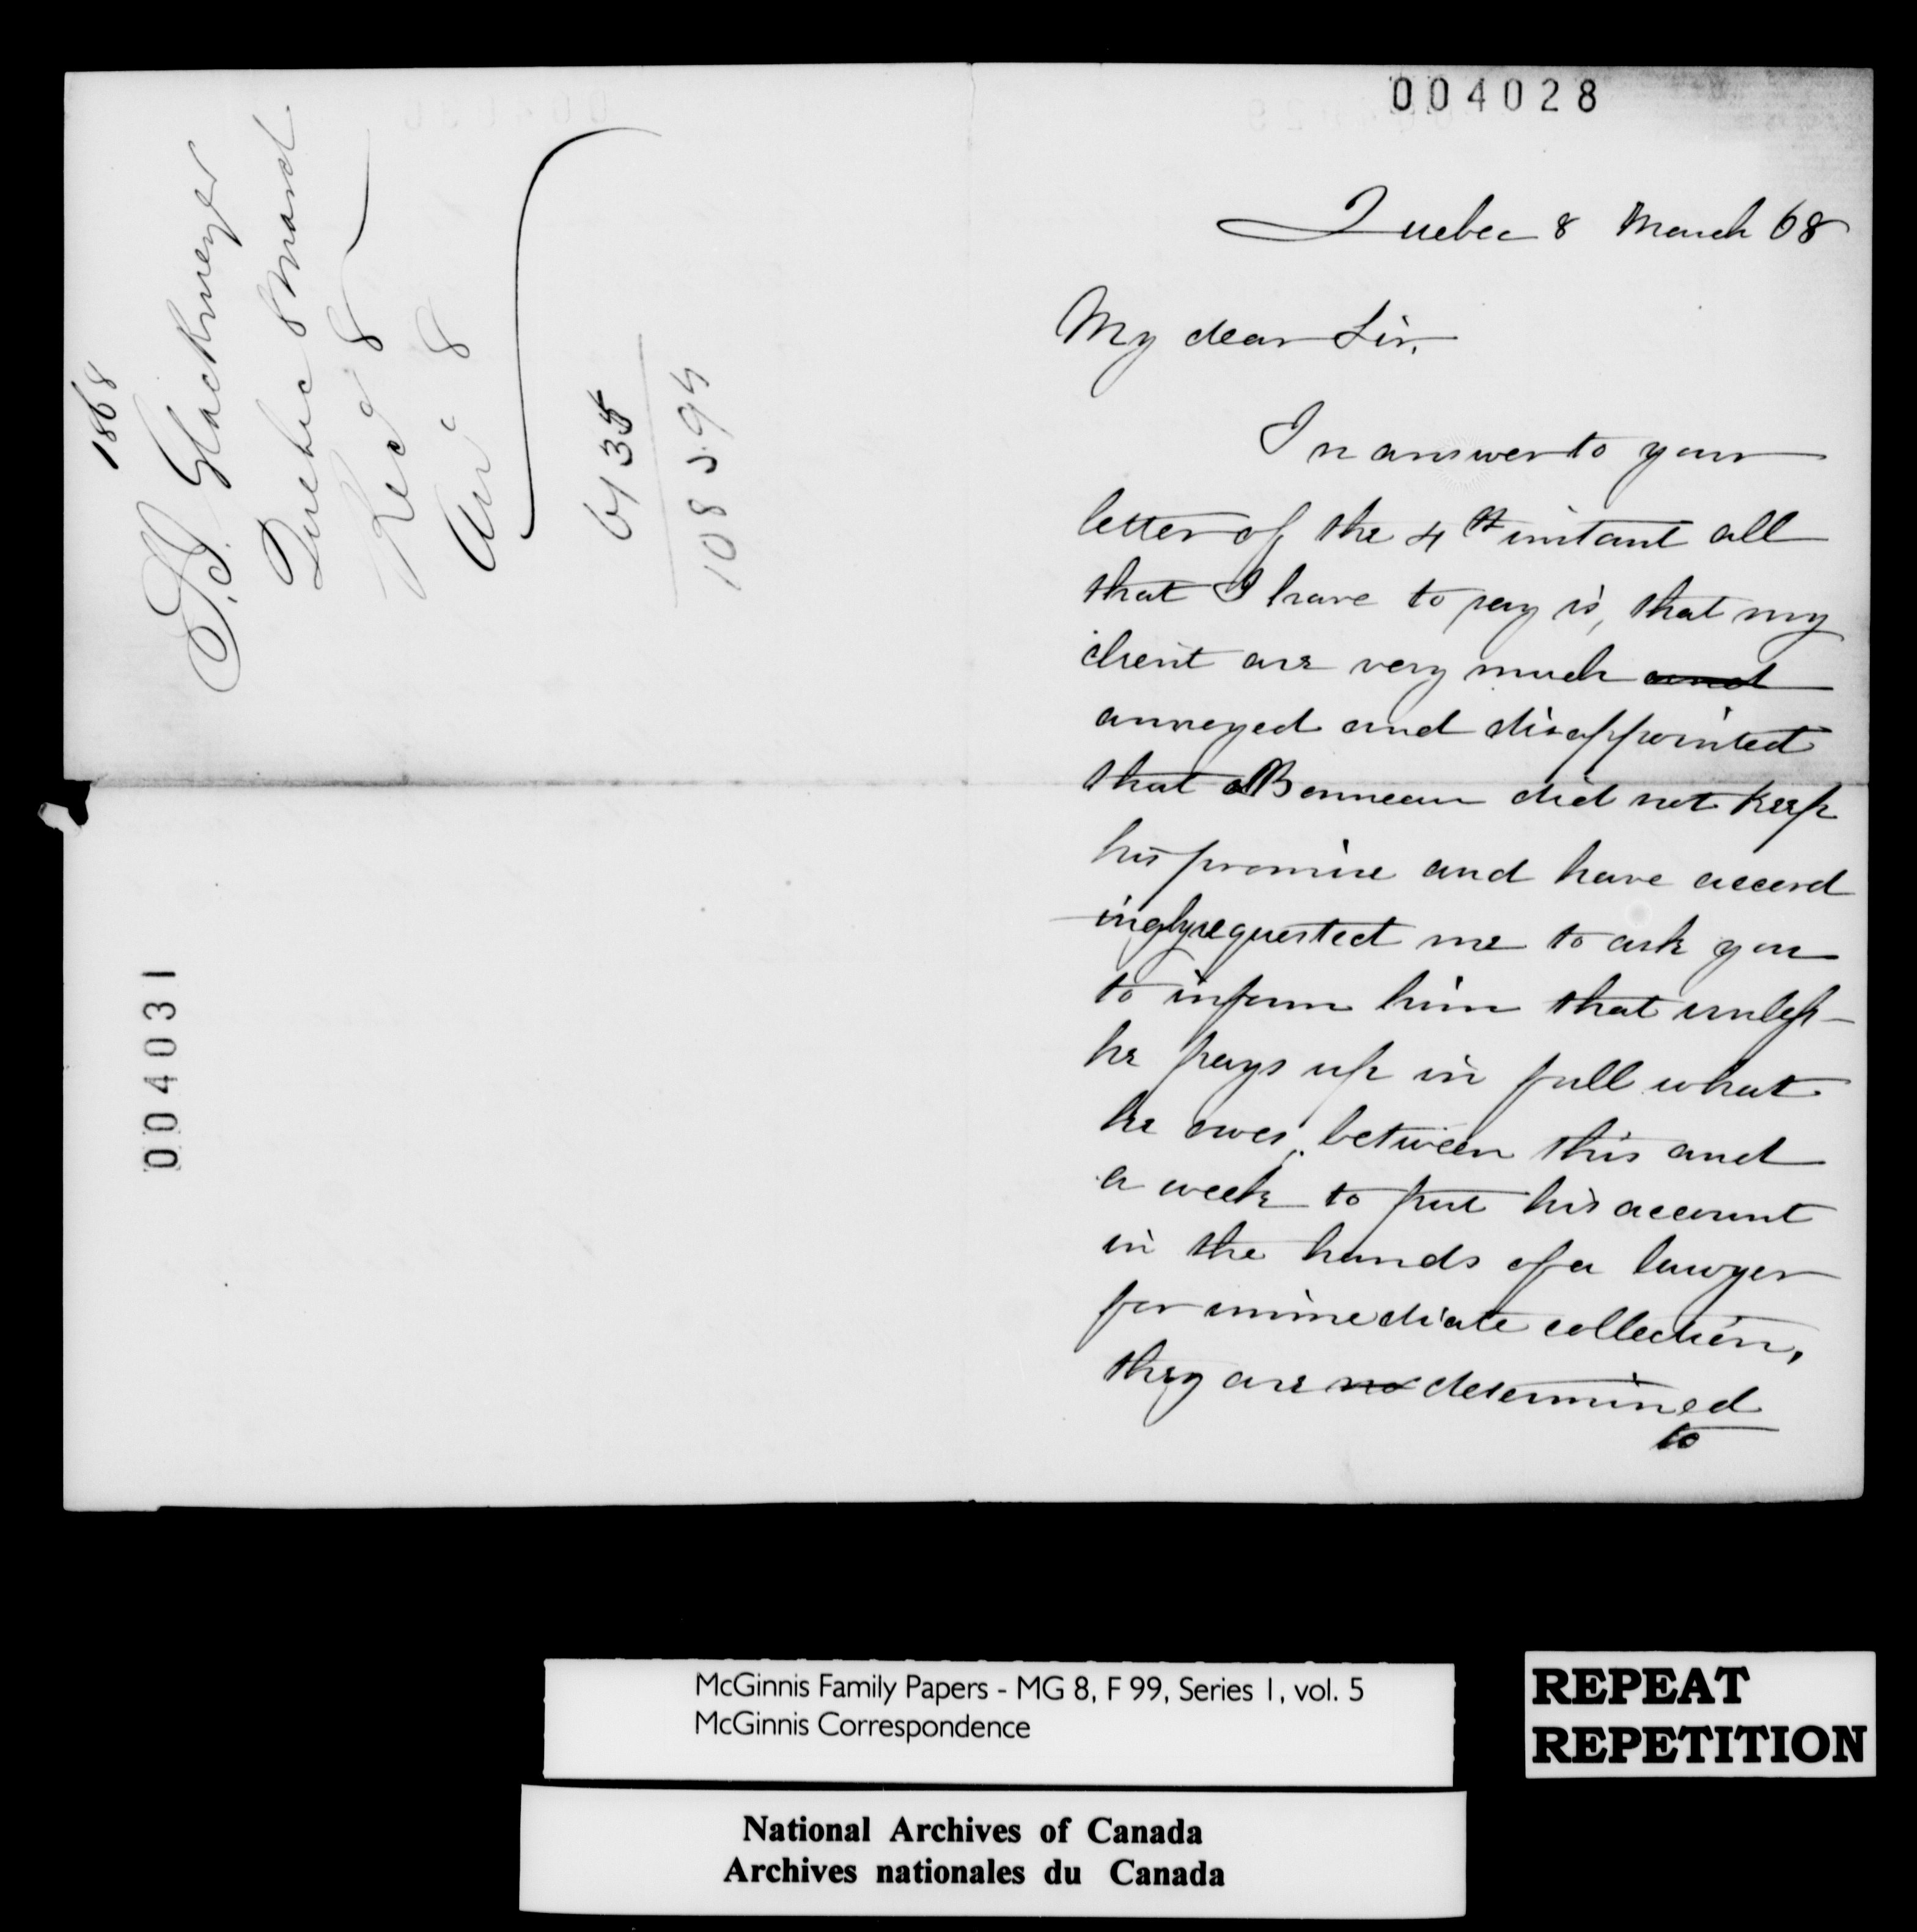 1868
S. J. Glackmeyer
Quebec 8 March
Rec'd 8
An'd 8
6135
108.94
004031
004028
Quebec 8 March 68
My dear Sir,
In answer to your
letter of the 4th instant all
that I have to say is, that my
client are very much and
annoyed and disappointed
that Bonneau did not keep
his promise and have accord
ingly requested me to ask you
to inform him that unless
he pays up in full what
he owes, between this and
a week to put his account
in the hands of a lawyer
for immediate collection,
they are no determined
to
McGinnis Family Papers - MG 8, F 99, Series 1, vol. 5
McGinnis Correspondence
REPEAT
REPETITION
National Archives of Canada
Archives nationales du Canada